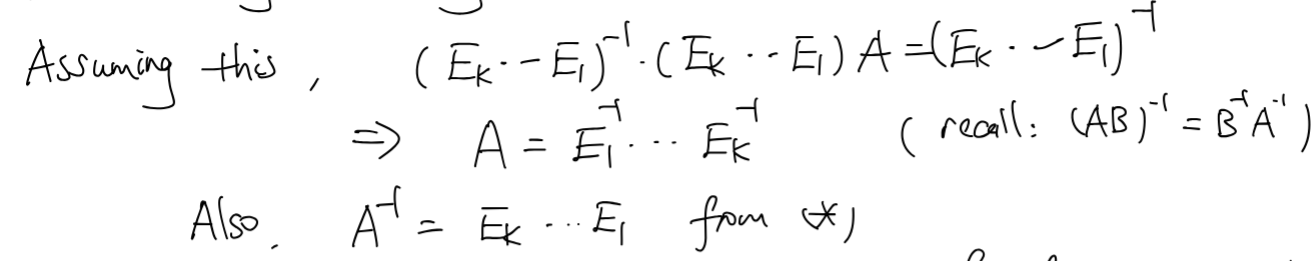 Assuming this, (E_k ·· E_1)^{-1} · (E_k ·· E_1) A = (E_k ·· E_1)^{-1}
⇒ A = E_1^{-1} ··· E_k^{-1} (recall: (AB)^{-1} = B^{-1}A^{-1})
Also, A^{-1} = E_k ··· E_1 from (*)